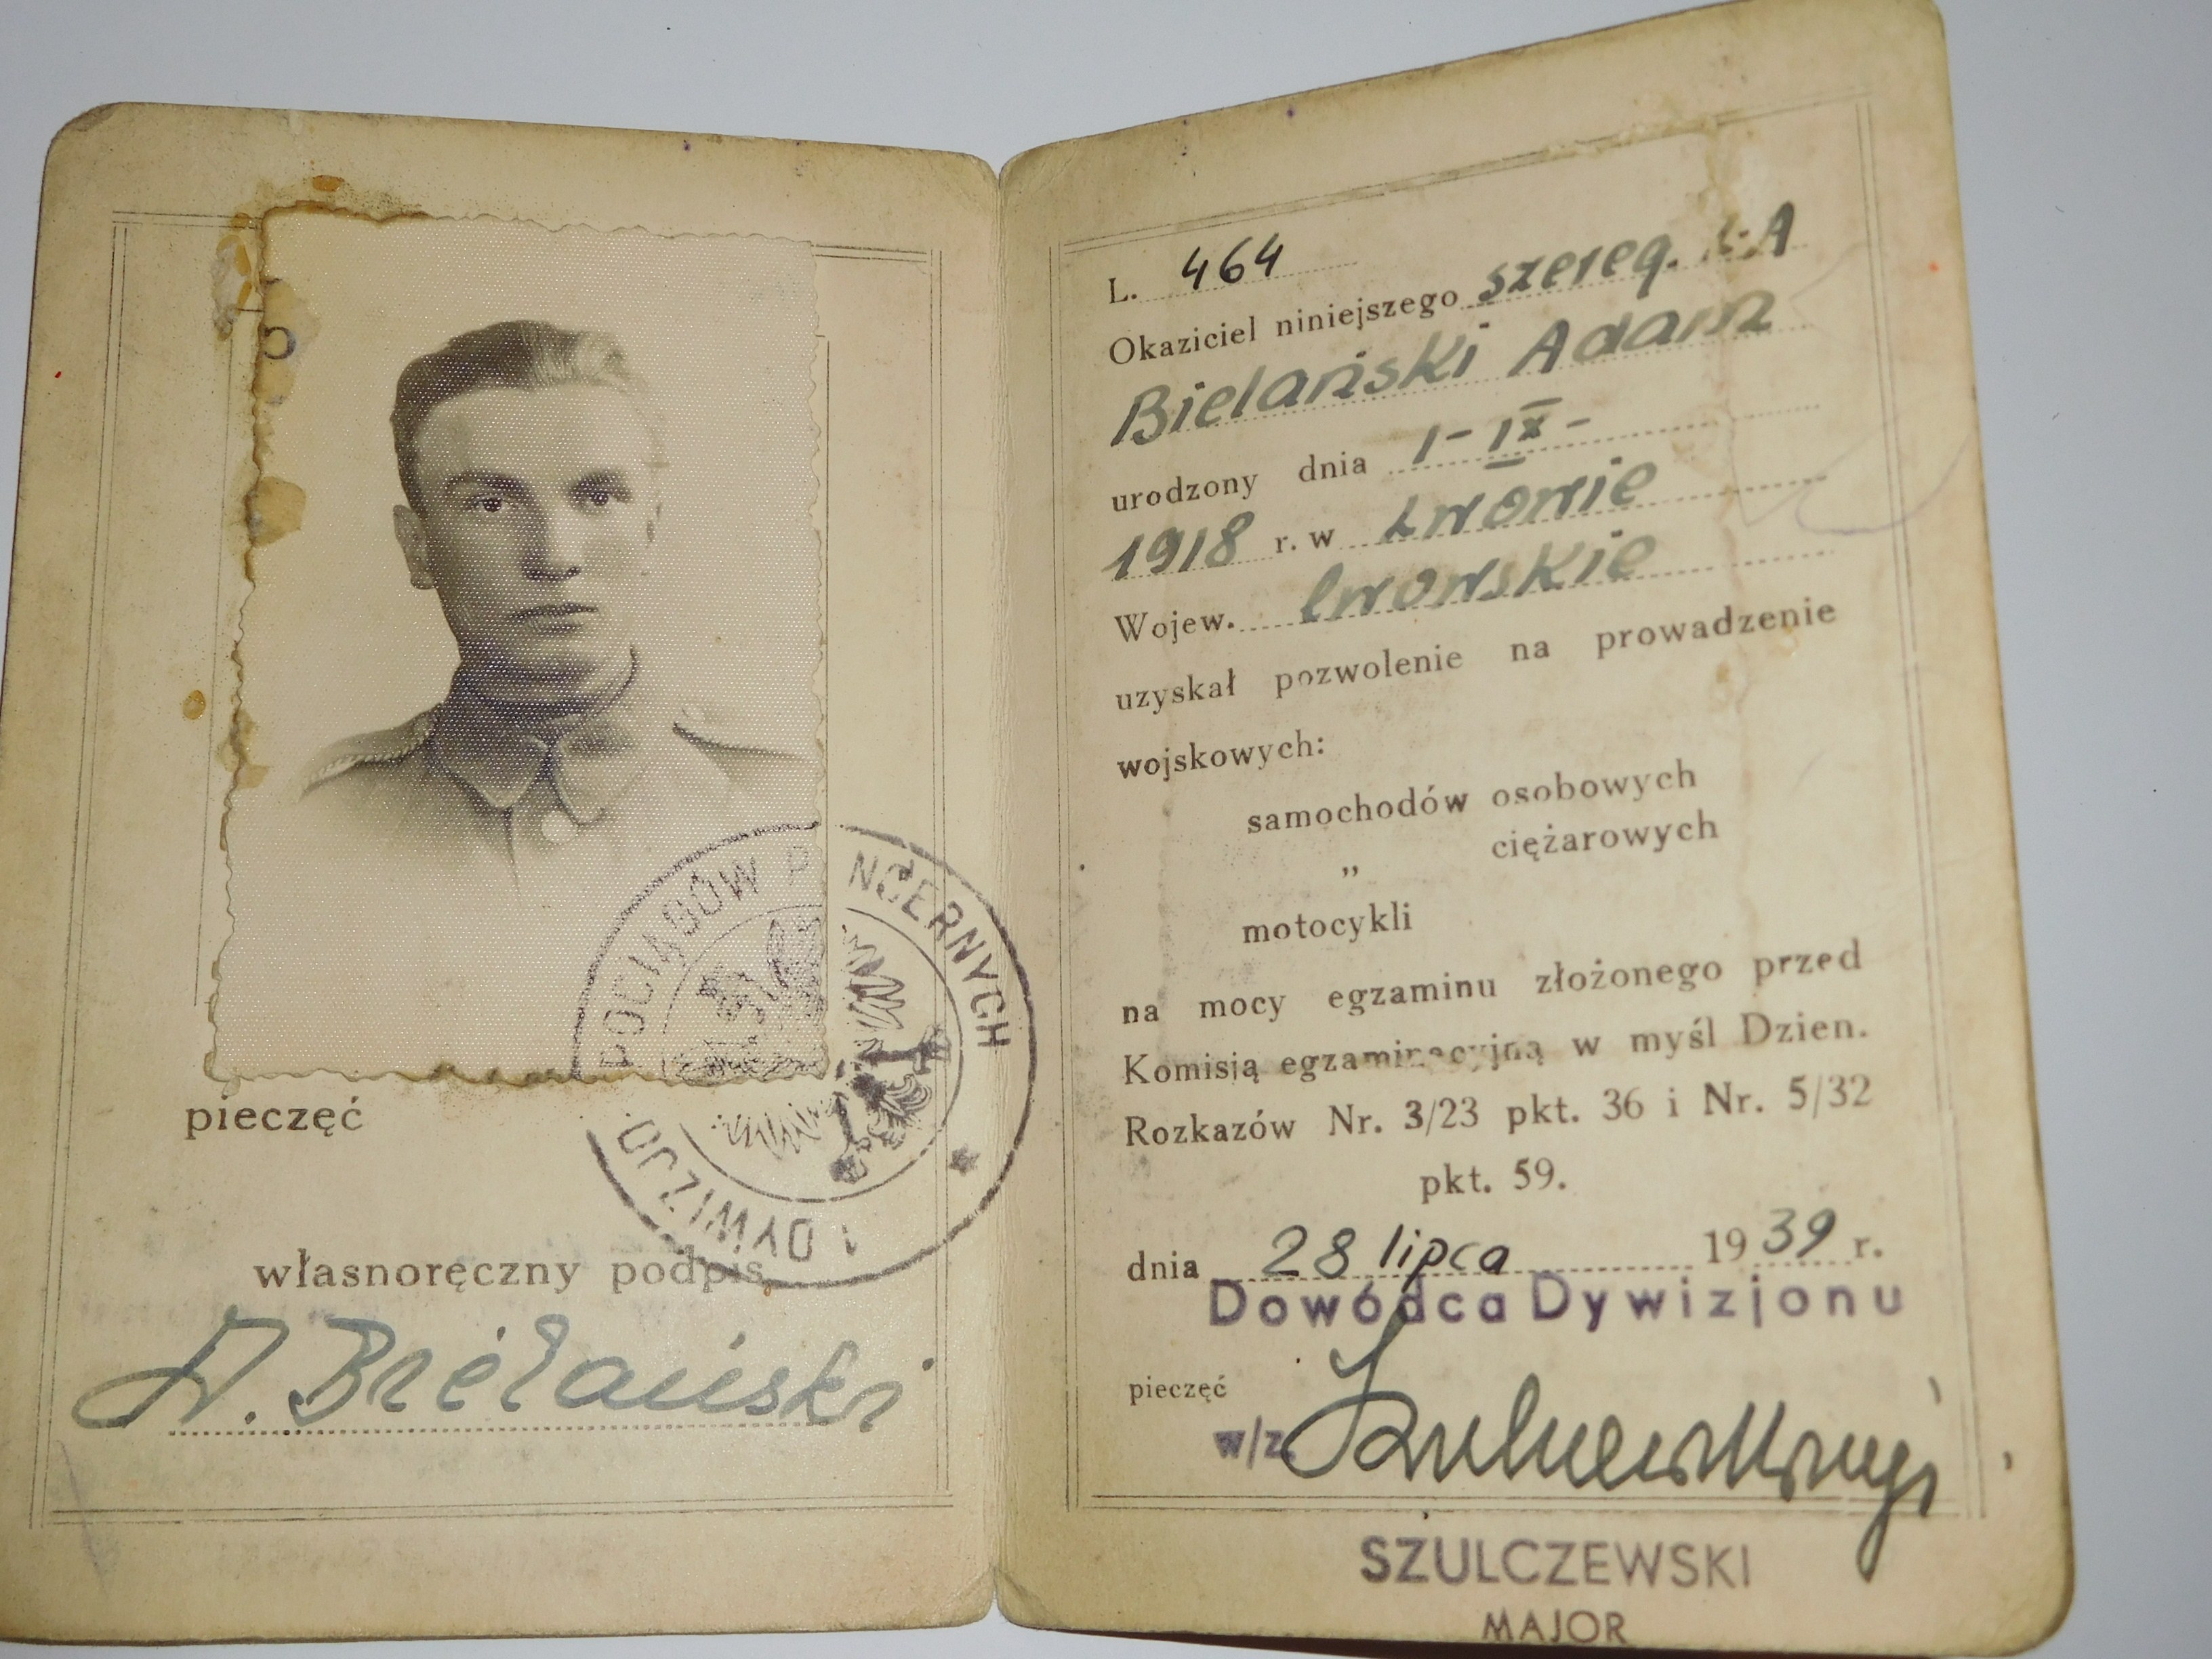 POCIĄGÓW PANCERNYCH
1 DYWIZJO
pieczęć
własnoręczny podpis
A. Bielański
L. 464
Okaziciel niniejszego szereg.
Bielański Adam
urodzony dnia 1-IX-
1918 r. w Lwowie
Wojew. lwowskie
uzyskał pozwolenie na prowadzenie
wojskowych:
samochodów osobowych
„ ciężarowych
motocykli
na mocy egzaminu złożonego przed
Komisją egzaminacyjną w myśl Dzien.
Rozkazów Nr. 3/23 pkt. 36 i Nr. 5/32
pkt. 59.
dnia 28 lipca 1939 r.
Dowódca Dywizjonu
pieczęć
w/z. Szulczewski
SZULCZEWSKI
MAJOR